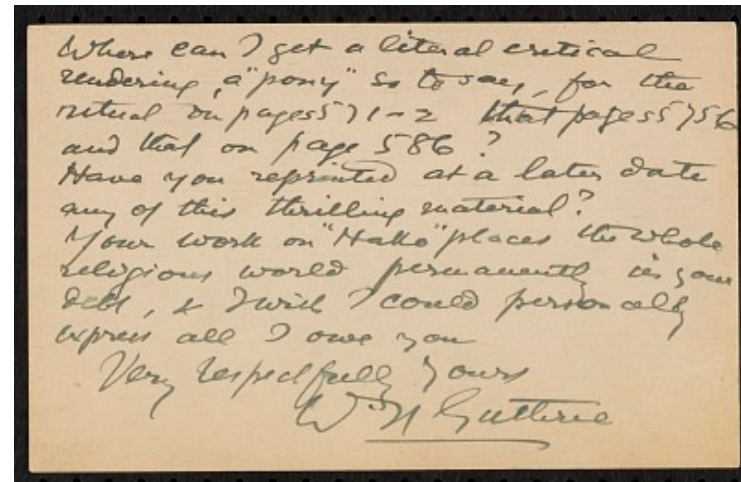 Where can I get a literal critical
rendering, a "pony" so to say, for the
ritual on pages 571-2 that pages 575-6
and that on page 586?
Have you reprinted at a later date
any of this thrilling material?
Your work on "Hako" places the whole
religious world permanently in your
debt, & I wish I could personally
express all I owe you
Very respectfully yours
Wm N Guthrie